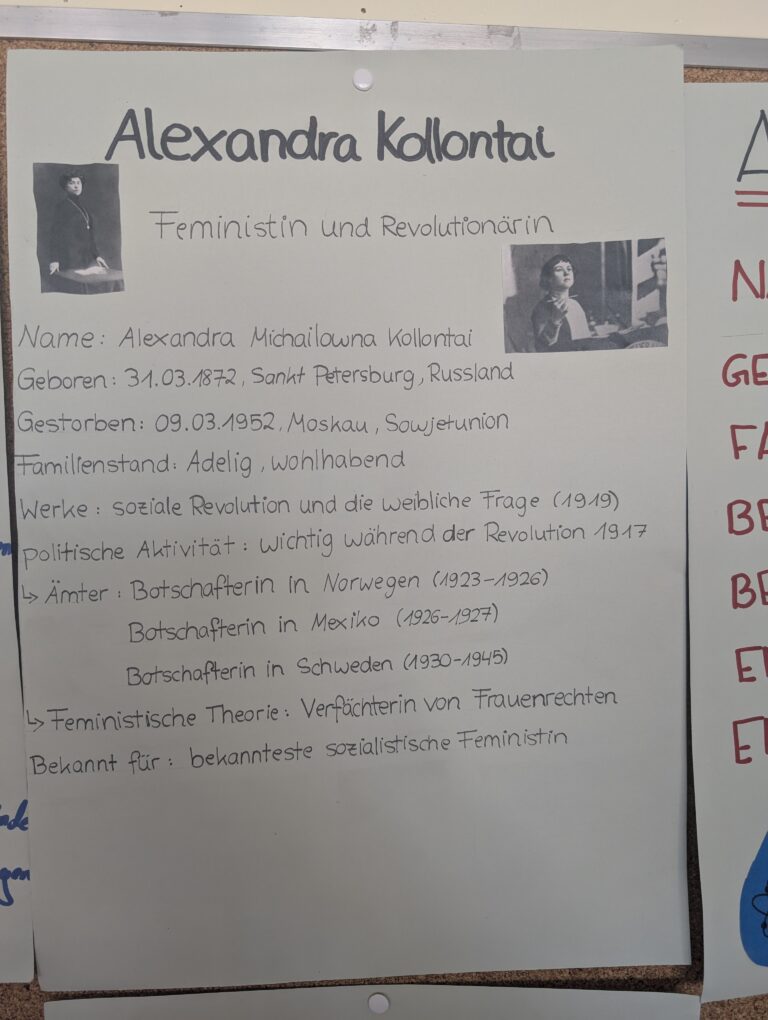 Alexandra Kollontai
Feministin und Revolutionärin
Name: Alexandra Michailowna Kollontai
Geboren: 31.03.1872, Sankt Petersburg, Russland
Gestorben: 09.03.1952, Moskau, Sowjetunion
Familienstand: Adelig, wohlhabend
Werke: soziale Revolution und die weibliche Frage (1919)
politische Aktivität: wichtig während der Revolution 1917
↳ Ämter: Botschafterin in Norwegen (1923-1926)
Botschafterin in Mexiko (1926-1927)
Botschafterin in Schweden (1930-1945)
↳ Feministische Theorie: Verfächterin von Frauenrechten
Bekannt für: bekannteste sozialistische Feministin
GE
FA
BE
BE